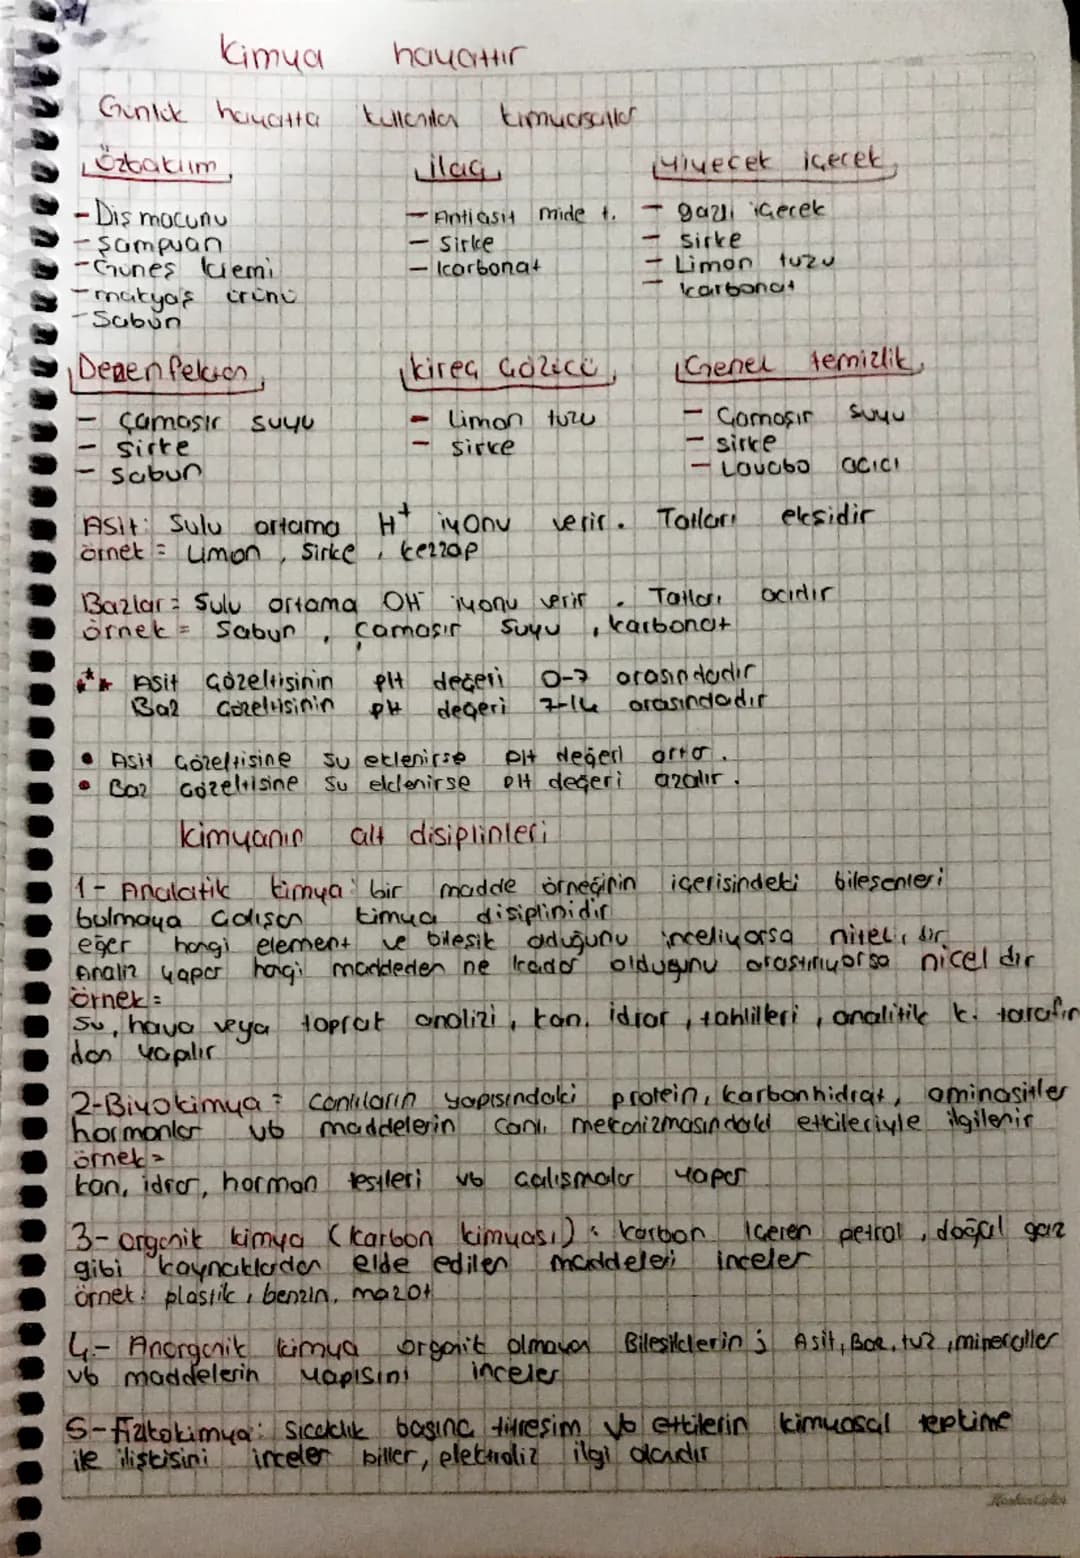 kimya hayattır
Günlük hayatta kullanılan kimyasallar
Özbakım
- Diş macunu
- şampuan
- Güneş kremi
- makyaj ürünü
- Sabun
ilaç
- Antiasit mide t.
- Sirke
- karbonat
yiyecek içecek
- gazlı içecek
- sirke
- Limon tuzu
- karbonat
Dezenfeksiyon
- çamaşır suyu
- sirke
- sabun
kireç çözücü
- Limon tuzu
- sirke
Genel temizlik
- Çamaşır suyu
- sirke
- Lavabo açıcı
Asit: Sulu ortama H⁺ iyonu verir. Tatları ekşidir
örnek = Limon, sirke, kezzap
Bazlar = Sulu ortama OH⁻ iyonu verir. Tatları acıdır
örnek = Sabun, çamaşır suyu, karbonat
** Asit çözeltisinin pH değeri 0-7 arasındadır
Baz çözeltisinin pH değeri 7-14 arasındadır
• Asit çözeltisine su eklenirse pH değeri artar.
• Baz çözeltisine su eklenirse pH değeri azalır.
kimyanın alt disiplinleri
1- Analatik kimya: bir madde örneğinin içerisindeki bileşenleri
bulmaya çalışan kimya disiplinidir
eğer hangi element ve bileşik olduğunu inceliyorsa nitel dir
Analiz yapar hangi maddeden ne kadar olduğunu araştırıyorsa nicel dir
örnek =
su, hava veya toprak analizi, kan, idrar, tahlilleri, analitik k. tarafın
dan yapılır
2-Biyokimya = canlıların yapısındaki protein, karbonhidrat, aminoasitler
hormonlar vb maddelerin canlı mekanizmasındaki etkileriyle ilgilenir
örnek =
kan, idrar, hormon testleri vb çalışmalar yapar
3- organik kimya (karbon kimyası): karbon içeren petrol, doğal gaz
gibi kaynaklardan elde edilen maddeleri inceler
örnek: plastik, benzin, mazot
4- Anorganik kimya organik olmayan Bileşiklerin ; Asit, Baz, tuz, mineraller
vb maddelerin yapısını inceler
5- Fizikokimya: sıcaklık basınç titreşim vb etkilerin kimyasal tepkime
ile ilişkisini inceler piller, elektroliz ilgi alanıdır